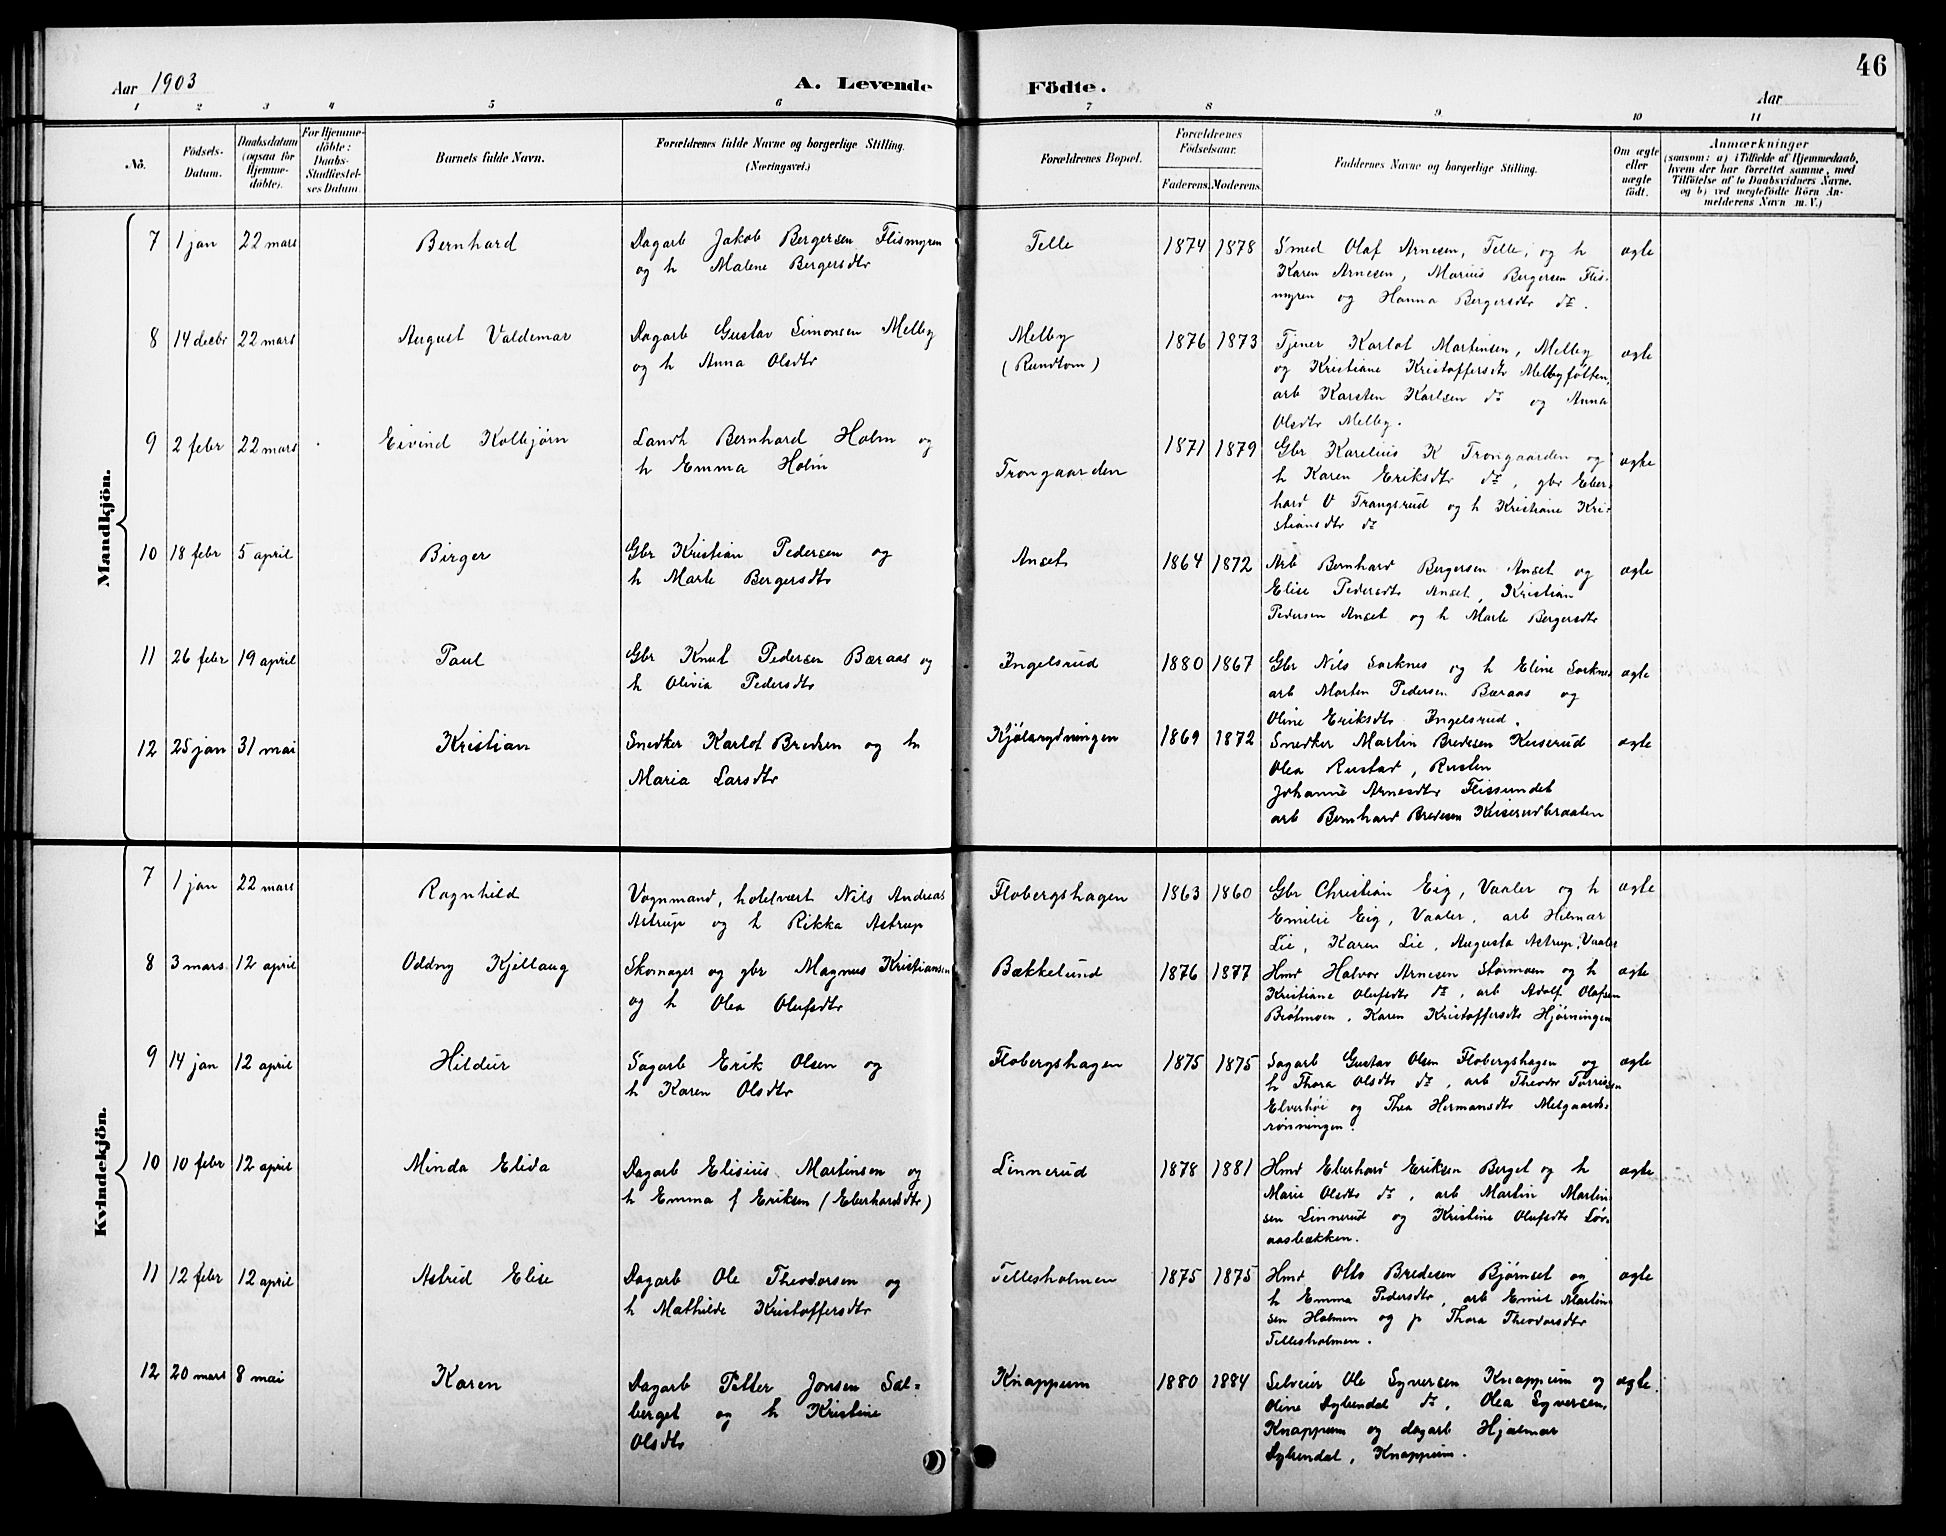 46
Aar 1903
A. Levende Födte.
Aar
1 2 3 4 5 6 7 8 9 10 11
Nö.
Födsels-Datum.
Daabsdatum (ogsaa for Hjemmedöbte).
For Hjemmedöbte: Daabs-Stadfæstelses Datum.
Barnets fulde Navn.
Forældrenes fulde Navne og borgerlige Stilling. (Næringsvei.)
Forældrenes Bopæl.
Forældrenes Födselsaar.
Faderens. Moderens.
Faddernes Navne og borgerlige Stilling.
Om ægte eller uægte födt.
Anmærkninger
(saasom: a) i Tilfælde af Hjemmedaab, hvem der har forrettet samme, med Tilföielse af to Daabsvidners Navne. og b) ved uægtefödte Börn Anmelderens Navn m. V.)
Mandkjön.
7 1 jan 22 mars Bernhard
Dagarb Jakob Bergersen Flismyren
og h Malene Bergersdtr
Telle 1874 1878
Smed Olaf Arnesen, Telle, og h
Karen Arnesen, Marius Bergersen Flis-
myren og Hanna Bergersdtr do.
ægte
8 14 decbr 22 mars August Valdemar
Dagarb Gustav Simonsen Melby
og h Anna Olsdtr
Melby
(Rundtom)
1876 1873
Tjener Karlot Martinsen, Melby
og Kristiane Kristoffersdtr Melbyfolten,
arb Karsten Karlsen do og Anna
Olsdtr Melby.
ægte
9 2 febr 22 mars Eivind Kolbjørn
Landh Bernhard Holm og
h Emma Holm
Trongaarden 1871 1879
Gbr Karelius K Trongaarden og
h Karen Eriksdtr do, gbr Eber-
hard O Trangsrud og h Kristiane Kri-
stiansdtr do
ægte
10 18 febr 5 april Birger
Gbr Kristian Pedersen og
h Marte Bergersdtr
Anset 1864 1872
Arb Bernhard Bergersen Anset og
Elise Pedersdtr Anset, Kristian
Pedersen Anset og h Marte Bergersdtr
ægte
11 26 febr 19 april Paul
Gbr Knut Pedersen Bæraas og
h Olivia Pedersdtr
Ingelsrud 1880 1867
Gbr Nils Sorknes og h Eline Sorknes
arb Morten Pedersen Bæraas og
Oline Eriksdtr Ingelsrud.
ægte
12 25 jan 31 mai Kristian
Snedker Karlot Bredsen og h
Maria Larsdtr
Kjølarydningen 1869 1872
Snedker Martin Bredesen Keiserud
Olea Rustad, Rusten
Johanne Arnesdtr Flissundet
arb Bernhard Bredesen Keiserudbraaten
ægte
Kvindekjön.
7 1 jan 22 mars Ragnhild
Vognmand, hotelvært Nils Andreas
Astrup og h Rikka Astrup
Flobergshagen 1863 1860
Gbr Christian Eig, Vaaler og h
Emilie Eig, Vaaler, arb Hilmar
Lie, Karen Lie, Augusta Astrup, Vaaler
ægte
8 3 mars. 12 april Oddny Kjellaug
Skomager og gbr Magnus Kristiansen
og h Olea Olufsdtr
Bækkelund 1876 1877
Hmd Halvor Arnesen Stormoen og h
Kristiane Olufsdtr do, arb Adolf Olafsen
Brotmoen, Karen Kristoffersdtr Hjørningen
ægte
9 14 jan 12 april Hildur
Sagarb Erik Olsen og
h Karen Olsdtr
Flobergshagen 1875 1875
Sagarb Gustav Olsen Flobergshagen og
h Thora Olsdtr do, arb Theodor Torrissen
Elverhøi og Thea Hermansdtr Melgaards-
rønningen.
ægte
10 10 febr 12 april Minda Elida
Dagarb Elisius Martinsen og
h Emma f Eriksen (Eberhardsdtr)
Linnerud 1878 1881
Hmd Eberhard Eriksen Berget og h
Marie Olsdtr do, arb Martin Martin-
sen Linnerud og Kristine Olufsdtr Løv-
aasbækken.
ægte
11 12 febr 12 april Astrid Elise
Dagarb Ole Theodorsen og
h Mathilde Kristoffersdtr
Tellesholmen 1875 1875
Hmd Otto Bredesen Bjørnset og
h Emma Pedersdtr, arb Emil Martin-
sen Holmen og p Thora Theodorsdtr
Tellesholmen.
ægte
12 20 mars 8 mai Karen
Dagarb Petter Jonsen Sæt-
berget og h Kristine
Olsdtr
Knappum 1880 1884
Selveier Ole Syversen Knappum og
Oline do, Olea Syversen,
Knappum og dagarb Hjalmar
Knappum.
ægte.